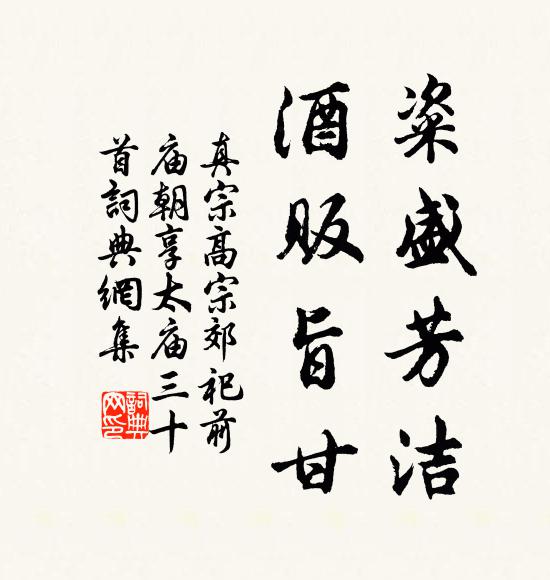 粢盛芳洁
酒贩旨甘
真宗高宗郊祀前
庙朝享太庙三十
首詞典網集
詞典网印